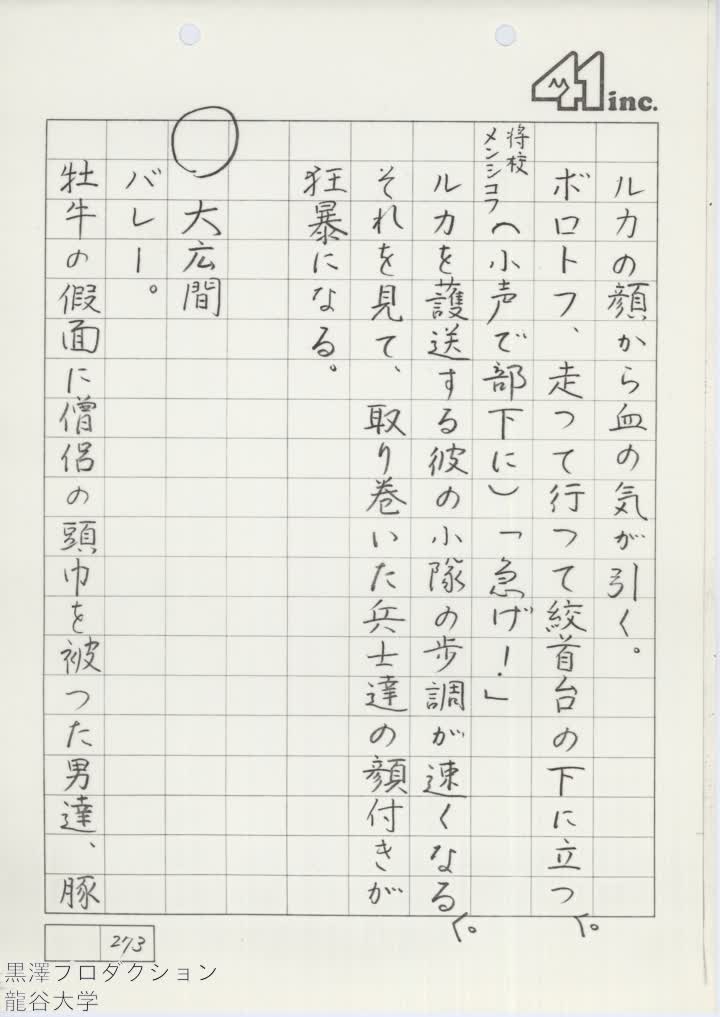 41 inc.
ルカの顔から血の気が引く。
ボロトフ、走つて行つて絞首台の下に立つ。
将校
メンシコフ(小声で部下に)「急げ!」
ルカを護送する彼の小隊の歩調が速くなる。
それを見て、取り巻いた兵士達の顔付きが
狂暴になる。
○ 大広間
バレー。
牡牛の假面に僧侶の頭巾を被つた男達、豚
273
黒澤プロダクション
龍谷大学